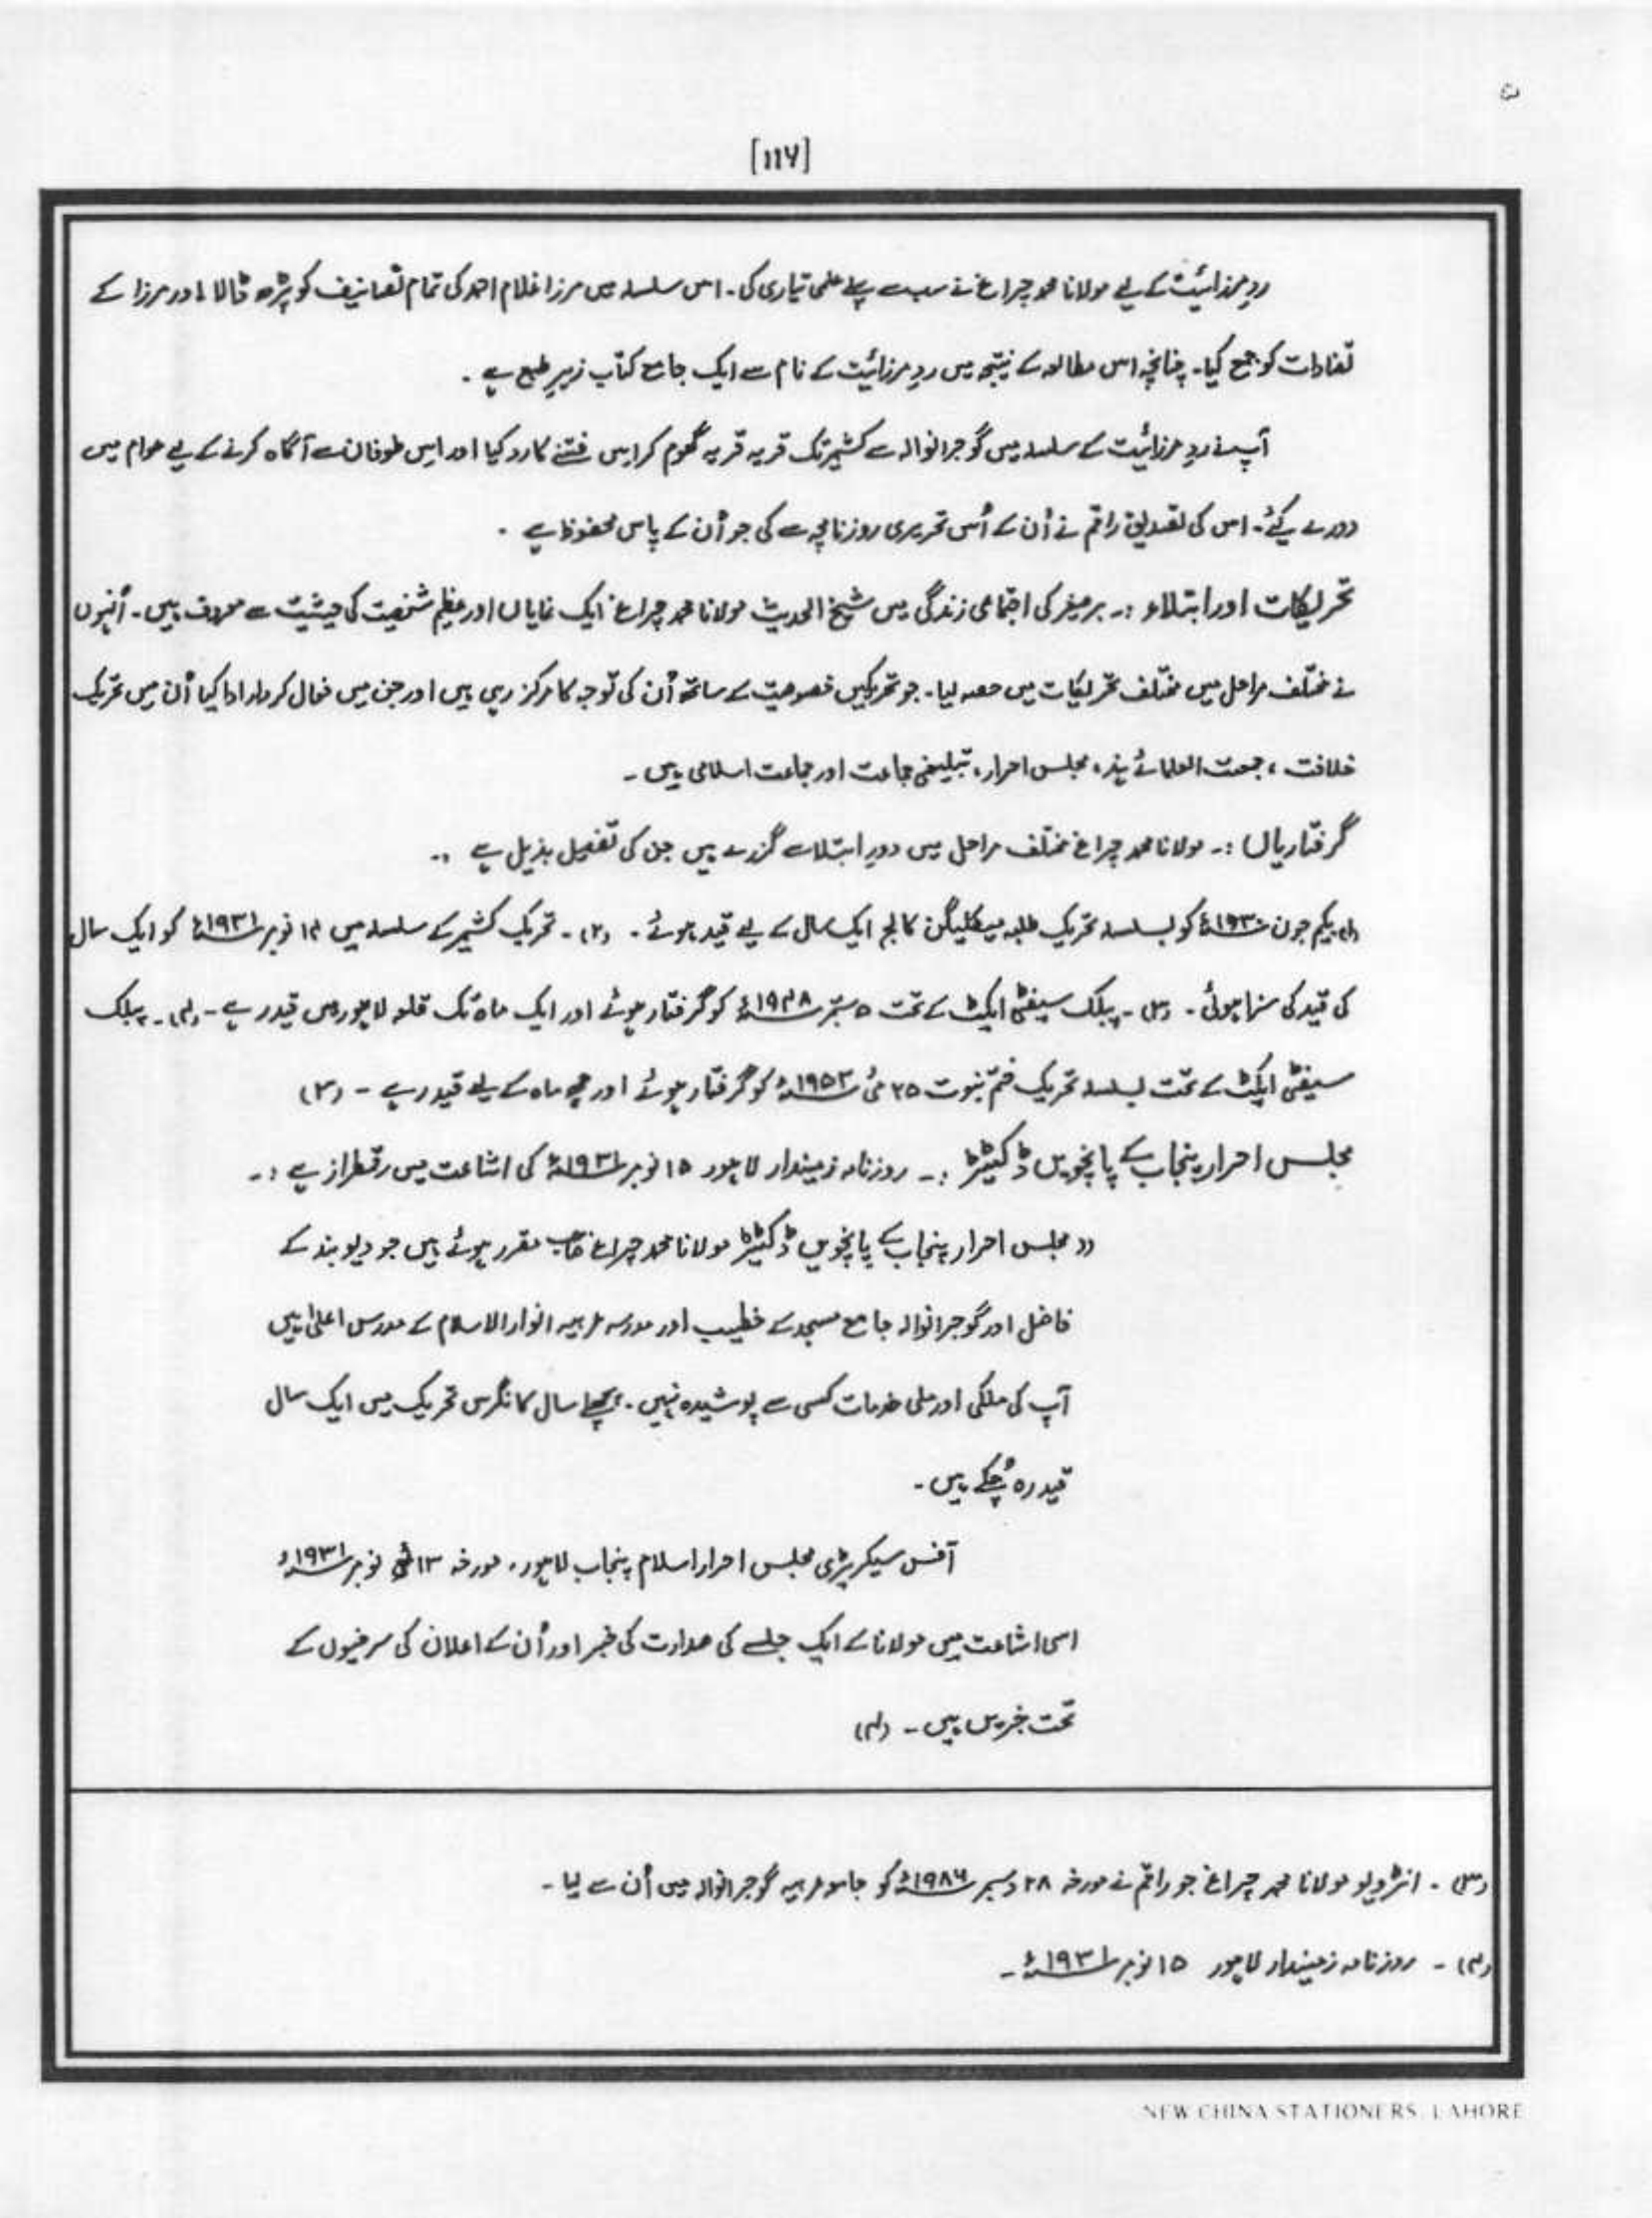 [۱۱۶]
ردِ مرزائیت کے لیے مولانا محمد چراغ نے سب سے پہلے علمی تیاری کی۔ اس سلسلہ میں مرزا غلام احمد کی تمام تصانیف کو پڑھ ڈالا اور مرزا کے
تضادات کو جمع کیا۔ چنانچہ اس مطالعہ کے نتیجہ میں ردِ مرزائیت کے نام سے ایک جامع کتاب زیرِ طبع ہے ۔
آپ نے ردِ مرزائیت کے سلسلہ میں گوجرانوالہ سے کشمیر تک قریہ قریہ گھوم کر اس فتنے کا رد کیا اور اس طوفان سے آگاہ کرنے کے لیے عوام میں
دورے کیئے۔ اس کی تصدیق راقم نے اُن کے اُس تحریری روزنامچہ سے کی جو اُن کے پاس محفوظ ہے ۔
تحریکات اور ابتلاء :۔ برصغیر کی اجتماعی زندگی میں شیخ الحدیث مولانا محمد چراغ ایک نمایاں اور عظیم شخصیت کی حیثیت سے معروف ہیں۔ اُنہوں
نے مختلف مراحل میں مختلف تحریکات میں حصہ لیا۔ جو تحریکیں خصوصیت کے ساتھ اُن کی توجہ کا مرکز رہی ہیں اور جن میں فعال کردار ادا کیا اُن میں تحریک
خلافت ، جمعت العلمائے ہند ، مجلس احرار ، تبلیغی جماعت اور جماعت اسلامی ہیں ۔
گرفتاریاں :۔ مولانا محمد چراغ مختلف مراحل میں دورِ ابتلا سے گزرے ہیں جن کی تفصیل بذیل ہے :۔
(۱) یکم جون ۱۹۳۰ء کو بسلسلہ تحریک طلبہ میکلیگن کالج ایک سال کے لیے قید ہوئے ۔ (۲)۔ تحریک کشمیر کے سلسلہ میں ۱۴ نومبر ۱۹۳۱ء کو ایک سال
کی قید کی سزا ہوئی ۔ (۳)۔ پبلک سیفٹی ایکٹ کے تحت ۵ ستمبر ۱۹۴۸ء کو گرفتار ہوئے اور ایک ماہ تک قلعہ لاہور میں قید رہے ۔ (۴)۔ پبلک
سیفٹی ایکٹ کے تحت بسلسلہ تحریک ختم نبوت ۲۵ مئی ۱۹۵۳ء کو گرفتار ہوئے اور چھ ماہ کے لیے قید رہے ۔ (۳)
مجلس احرار پنجاب کے پانچویں ڈکٹیٹر :۔ روزنامہ زمیندار لاہور ۱۵ نومبر ۱۹۳۱ء کی اشاعت میں رقمطراز ہے :۔
" مجلس احرار پنجاب کے پانچویں ڈکٹیٹر مولانا محمد چراغ صاحب مقرر ہوئے ہیں جو دیوبند کے
فاضل اور گوجرانوالہ جامع مسجد کے خطیب اور مدرسہ عربیہ انوار الاسلام کے مدرس اعلیٰ ہیں
آپ کی ملکی اور ملی خدمات کسی سے پوشیدہ نہیں ۔ پچھلے سال کانگرس تحریک میں ایک سال
قید رہ چُکے ہیں ۔
آفس سیکریٹری مجلس احرار اسلام پنجاب لاہور ، مورخہ ۱۳ نومبر ۱۹۳۱ء
اسی اشاعت میں مولانا کے ایک جلسے کی صدارت کی خبر اور اُن کے اعلان کی سرخیوں کے
تحت خبریں ہیں ۔ (۴)
(۳) ۔ انٹرویو مولانا محمد چراغ جو راقم نے مورخہ ۲۸ دسمبر ۱۹۸۶ء کو جامعہ عربیہ گوجرانوالہ میں اُن سے لیا ۔
(۴) ۔ روزنامہ زمیندار لاہور ۱۵ نومبر ۱۹۳۱ء ۔
NEW CHINA STATIONERS, LAHORE